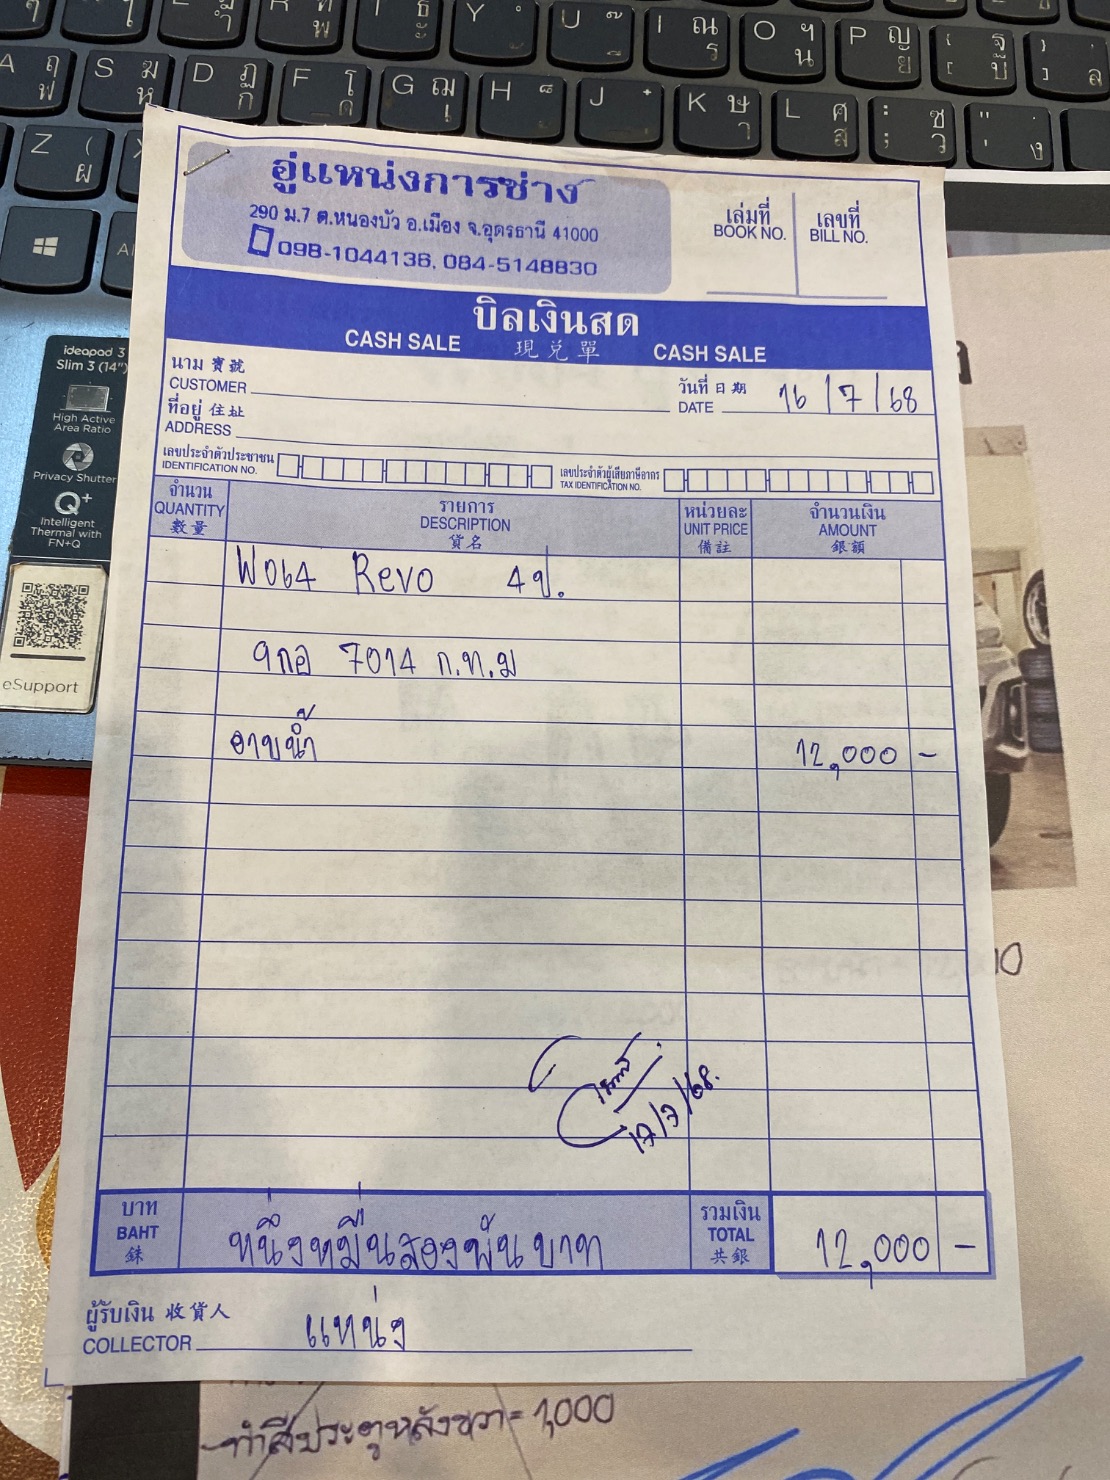 Y
U
I ณ ร
O ฯ น
P ญ ย
[ ฐ บ
A ฤ ฟ
S ฆ ห
D ฏ ก
F โ ด
G ฌ เ
H
J
K ษ า
L ศ ส
: ; ซ ว
" ' . ง
Z ( ผ
อู่แหน่งการช่าง
290 ม.7 ต.หนองบัว อ.เมือง จ.อุดรธานี 41000
098-1044136, 084-5148830
เล่มที่ เลขที่
BOOK NO. BILL NO.
บิลเงินสด
CASH SALE 現兌單 CASH SALE
นาม 寶號
CUSTOMER
วันที่ 日期
DATE 16/7/68
ที่อยู่ 住址
ADDRESS
เลขประจำตัวประชาชน
IDENTIFICATION NO.
เลขประจำตัวผู้เสียภาษีอากร
TAX IDENTIFICATION NO.
จำนวน รายการ หน่วยละ จำนวนเงิน
QUANTITY DESCRIPTION UNIT PRICE AMOUNT
數量 貨名 備註 銀額
W064 Revo 4ป.
9กอ 7014 ก.ท.ม
อาบน้ำ 12,000 -
17/7/68.
บาท
BAHT
銖
หนึ่งหมื่นสองพันบาท
รวมเงิน
TOTAL
共銀
12,000 -
ผู้รับเงิน 收貨人
COLLECTOR แหน่ง
ideapad 3
Slim 3 (14")
High Active
Area Ratio
Privacy Shutter
Q+
Intelligent
Thermal with
FN+Q
eSupport
-ทำสีประตูหลังขวา = 1,000